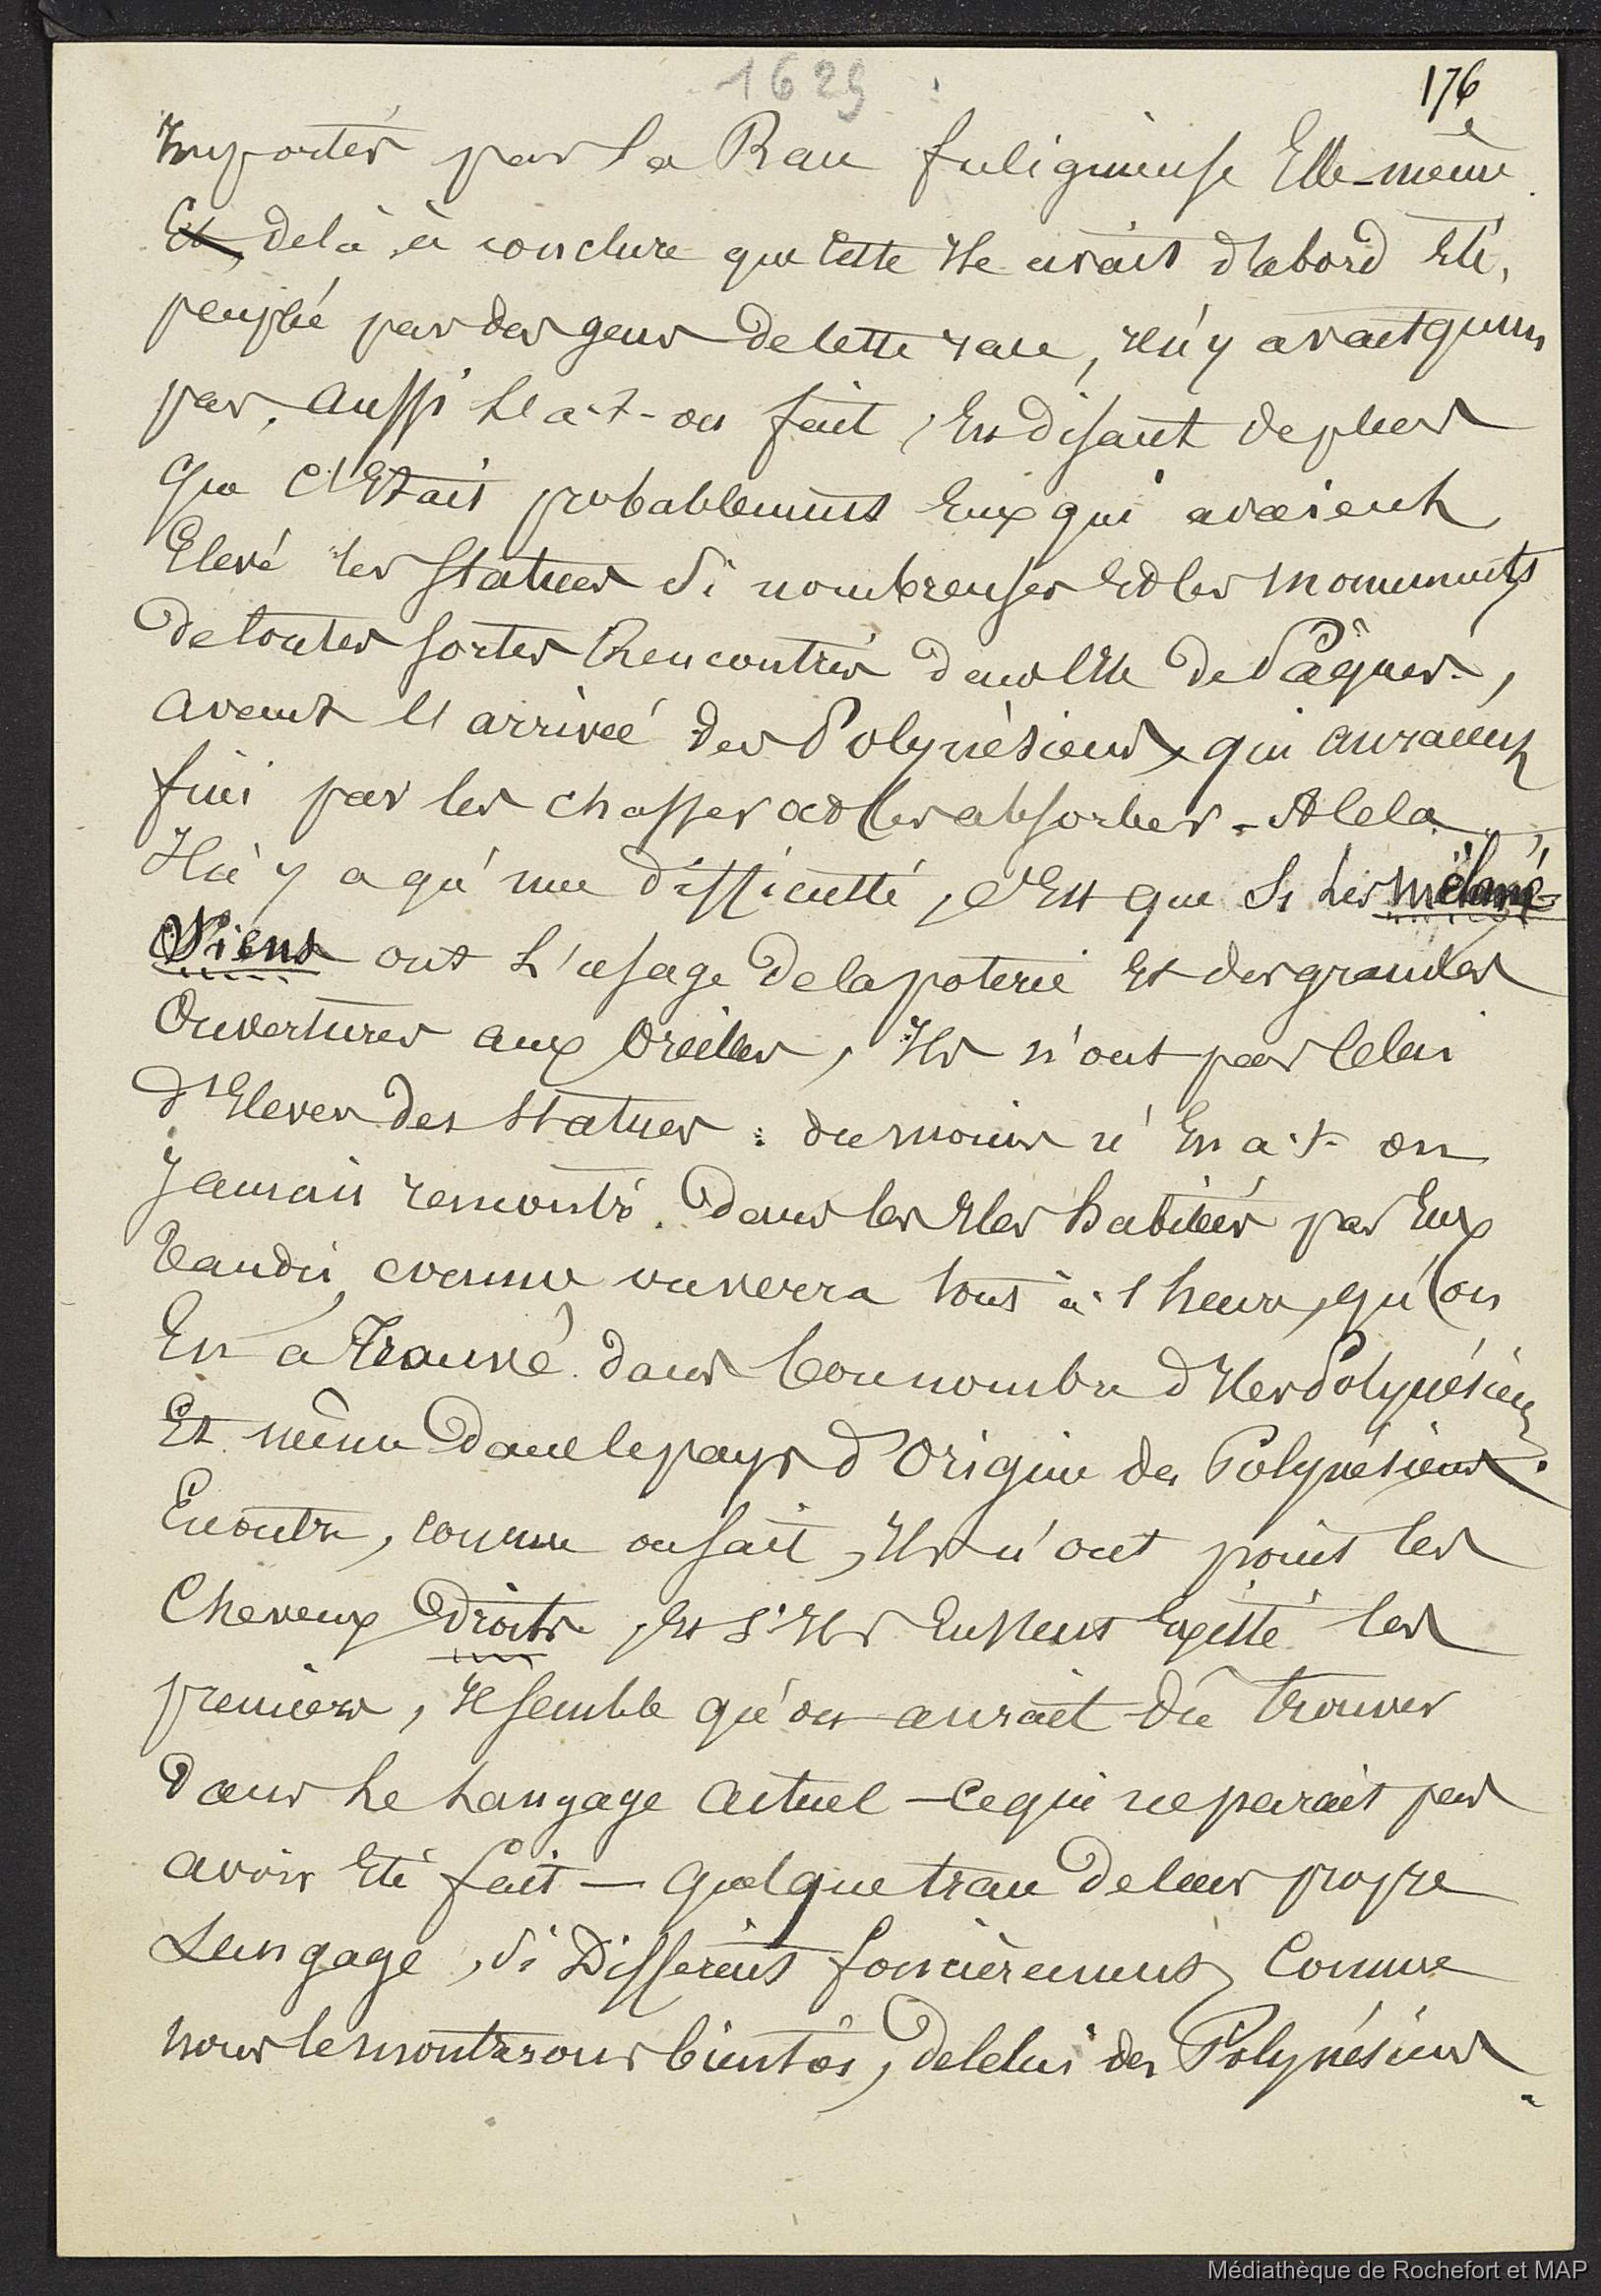 1629
176
Importés par la Race fuligineuse Elle-même
Et, delà à conclure que cette Ile avait d'abord été,
peuplé par des gens de cette race, il n'y avait qu'un
pas. Aussi l'a-t-on fait, En disant de plus
que c'Etait probablement Eux qui avaient
Elevé les Statues si nombreuses Et les monuments
de toutes sortes Rencontrés dans l'Ile de Pâques,
avant l'arrivée des Polynésiens, qui auraient
fini par les chasser ou les absorber. A cela
Il n'y a qu'une difficulté, c'Est que si les mélané-
siens ont l'usage de la poterie Et des grandes
Ouvertures aux Oreilles, Ils n'ont pas celui
d'Elever des Statues : du moins n'En a-t-on
Jamais rencontré dans les Iles habitées par Eux
Tandis, comme on verra tout à l'heure, qu'on
En a trouvé dans bon nombre d'Iles Polynésiennes
Et même dans le pays d'Origine des Polynésiens.
En outre, comme on sait, Ils n'ont point les
Cheveux droits, Et s'Ils Eussent Existé les
premiers, Il semble qu'on aurait dû trouver
dans le Langage actuel — ce qui ne parait pas
avoir été fait — quelque trace de leur propre
Langage, si Différent foncièrement, Comme
nous le montrerons bientôt, de celui des Polynésiens.
Médiathèque de Rochefort et MAP